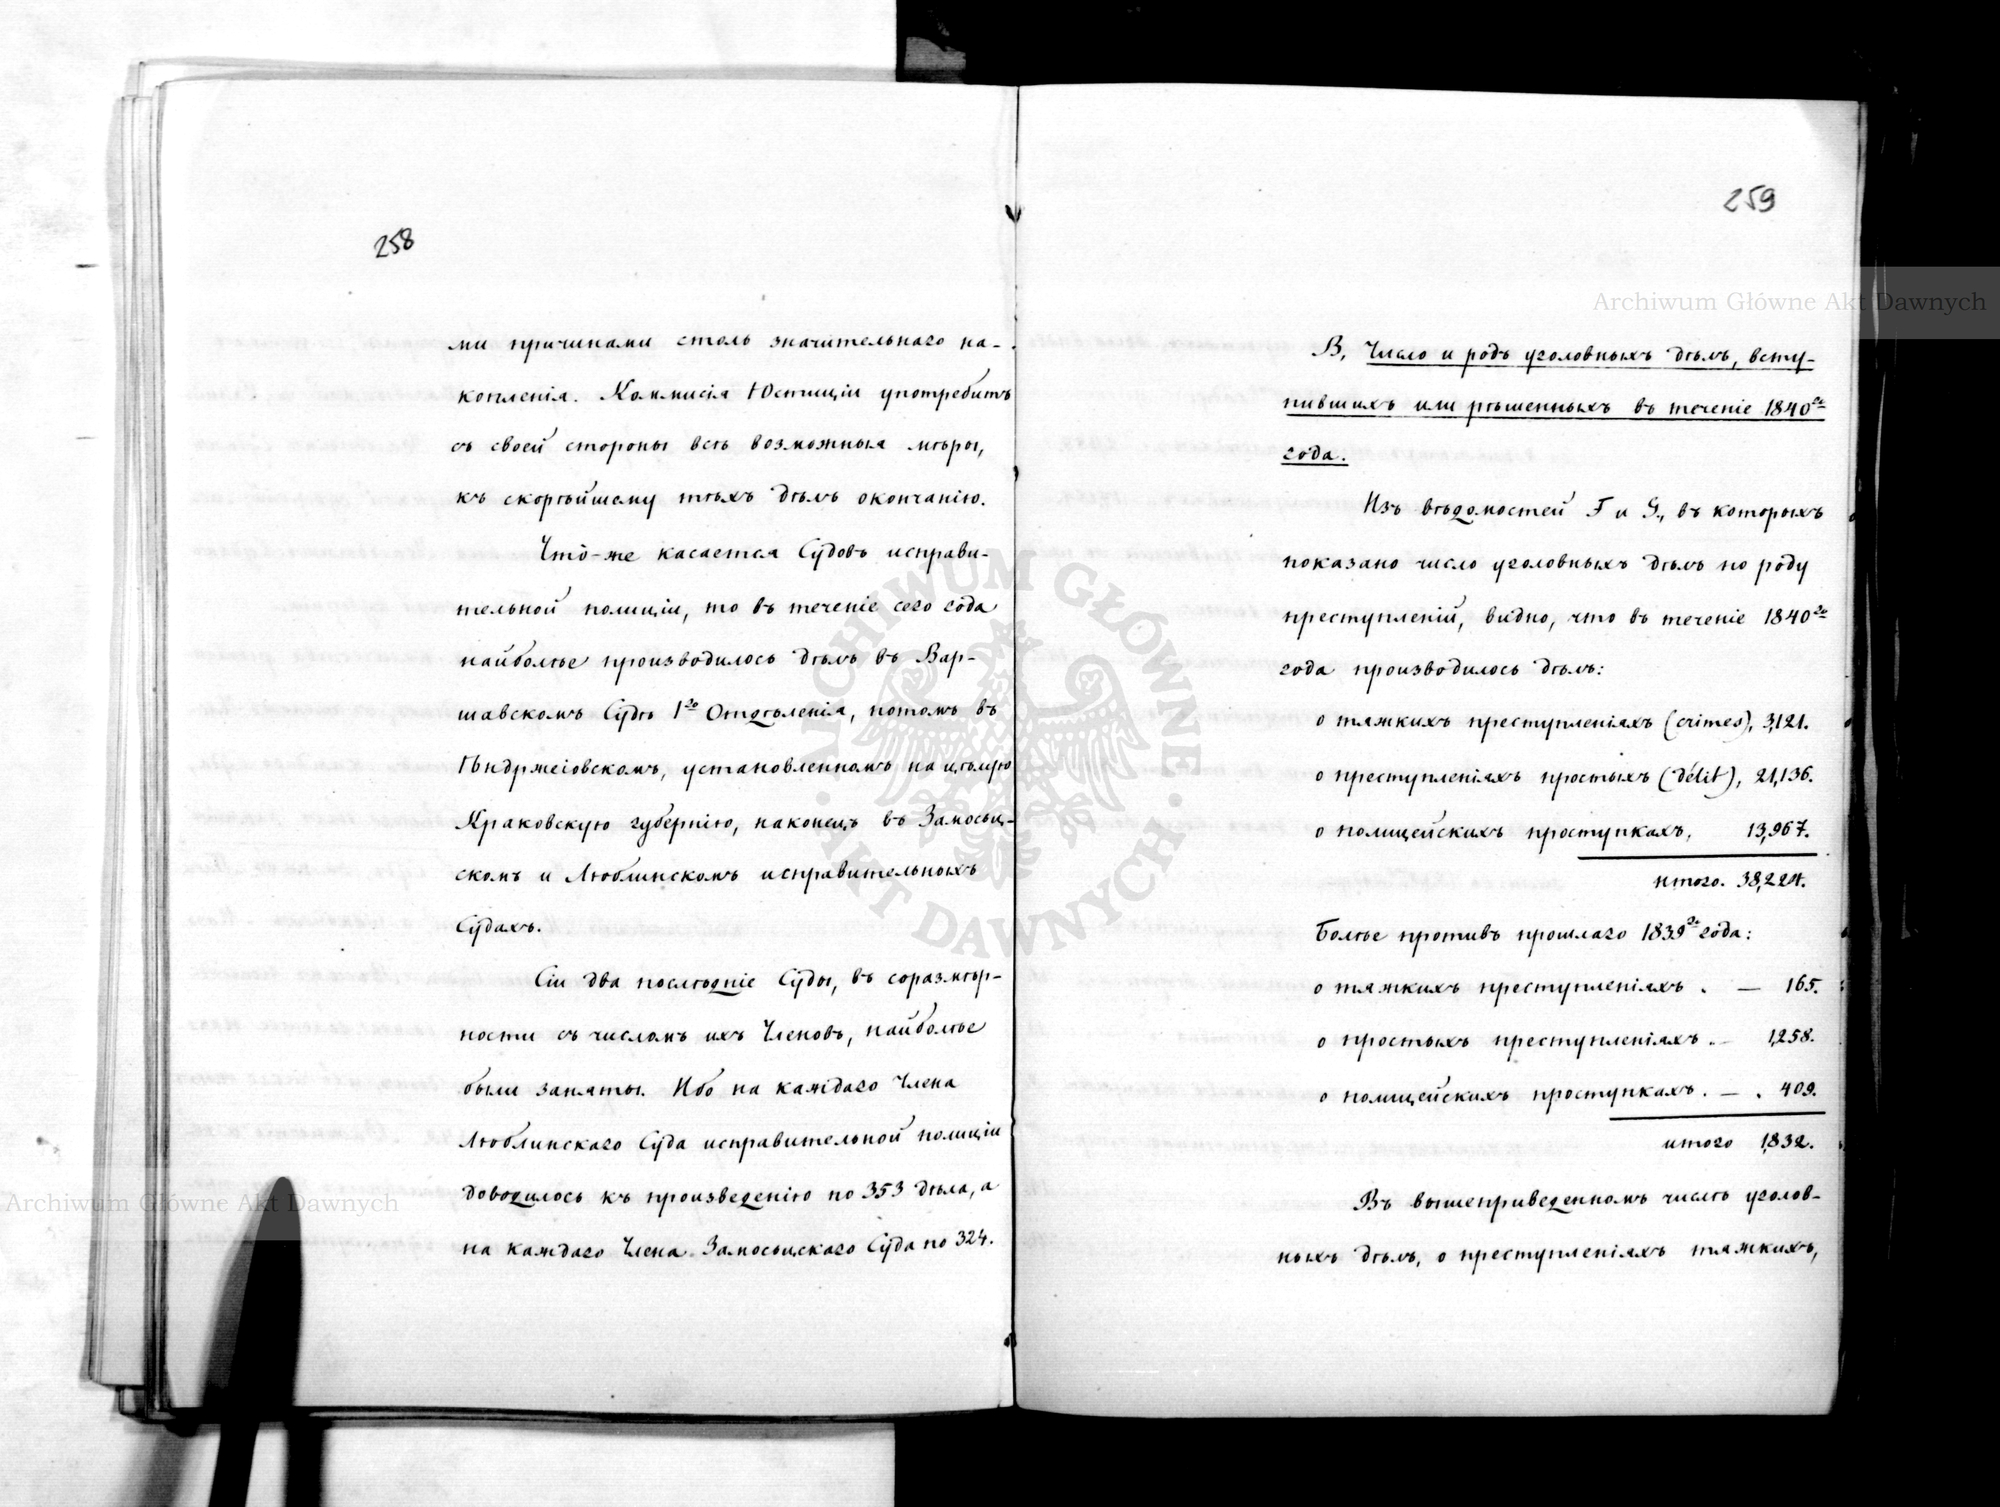 258
ми причинами столь значительнаго на-
копленія. Коммисія Юстиціи употребитъ
съ своей стороны всѣ возможныя мѣры,
къ скорѣйшему тѣхъ дѣлъ окончанію.
Чтò-же касается Судовъ исправи-
тельной полиціи, то въ теченіе сего года
наиболѣе производилось дѣлъ въ Вар-
шавскомъ Судѣ 1го Отдѣленія, потомъ въ
Ѣндржеіовскомъ, установленномъ на цѣлую
Краковскую губернію, наконецъ въ Замосьц-
скомъ и Люблинскомъ исправительныхъ
Судахъ.
Сіи два послѣдніе Суды, въ соразмѣр-
ности съ числомъ ихъ Членовъ, наиболѣе
были заняты. Ибо на каждаго Члена
Люблинскаго Суда исправительной полиціи
доводилось къ произведенію по 353 дѣла, а
на каждаго Члена Замосьцскаго Суда по 324.
259
В, Число и родъ уголовныхъ дѣлъ, всту-
пившихъ или рѣшенныхъ въ теченіе 1840го
года.
Изъ вѣдомостей F и G., въ которыхъ
показано число уголовныхъ дѣлъ по роду
преступленій, видно, что въ теченіе 1840го
года производилось дѣлъ:
о тяжкихъ преступленіяхъ (crimes), 3,121.
о преступленіяхъ простыхъ (délit), 21,136.
о полицейскихъ проступкахъ, 13,967.
итого. 38,224.
Болѣе противъ прошлаго 1839го года:
о тяжкихъ преступленіяхъ . — 165.
о простыхъ преступленіяхъ . — 1,258.
о полицейскихъ проступкахъ . — . 409.
итого 1,832.
Въ вышеприведенномъ числѣ уголов-
ныхъ дѣлъ, о преступленіяхъ тяжкихъ,
Archiwum Główne Akt Dawnych
Archiwum Główne Akt Dawnych
ARCHIWUM GŁÓWNE
AKT DAWNYCH